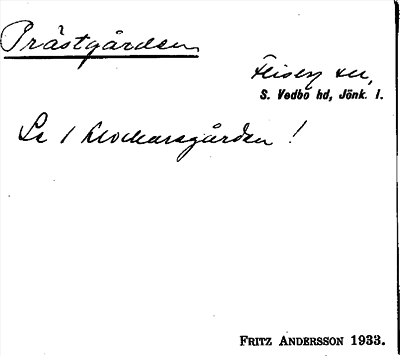 Prästgården
Flisby sn,
S. Vedbo hd, Jönk. l.
Se 1 Klockaregården!
FRITZ ANDERSSON 1933.